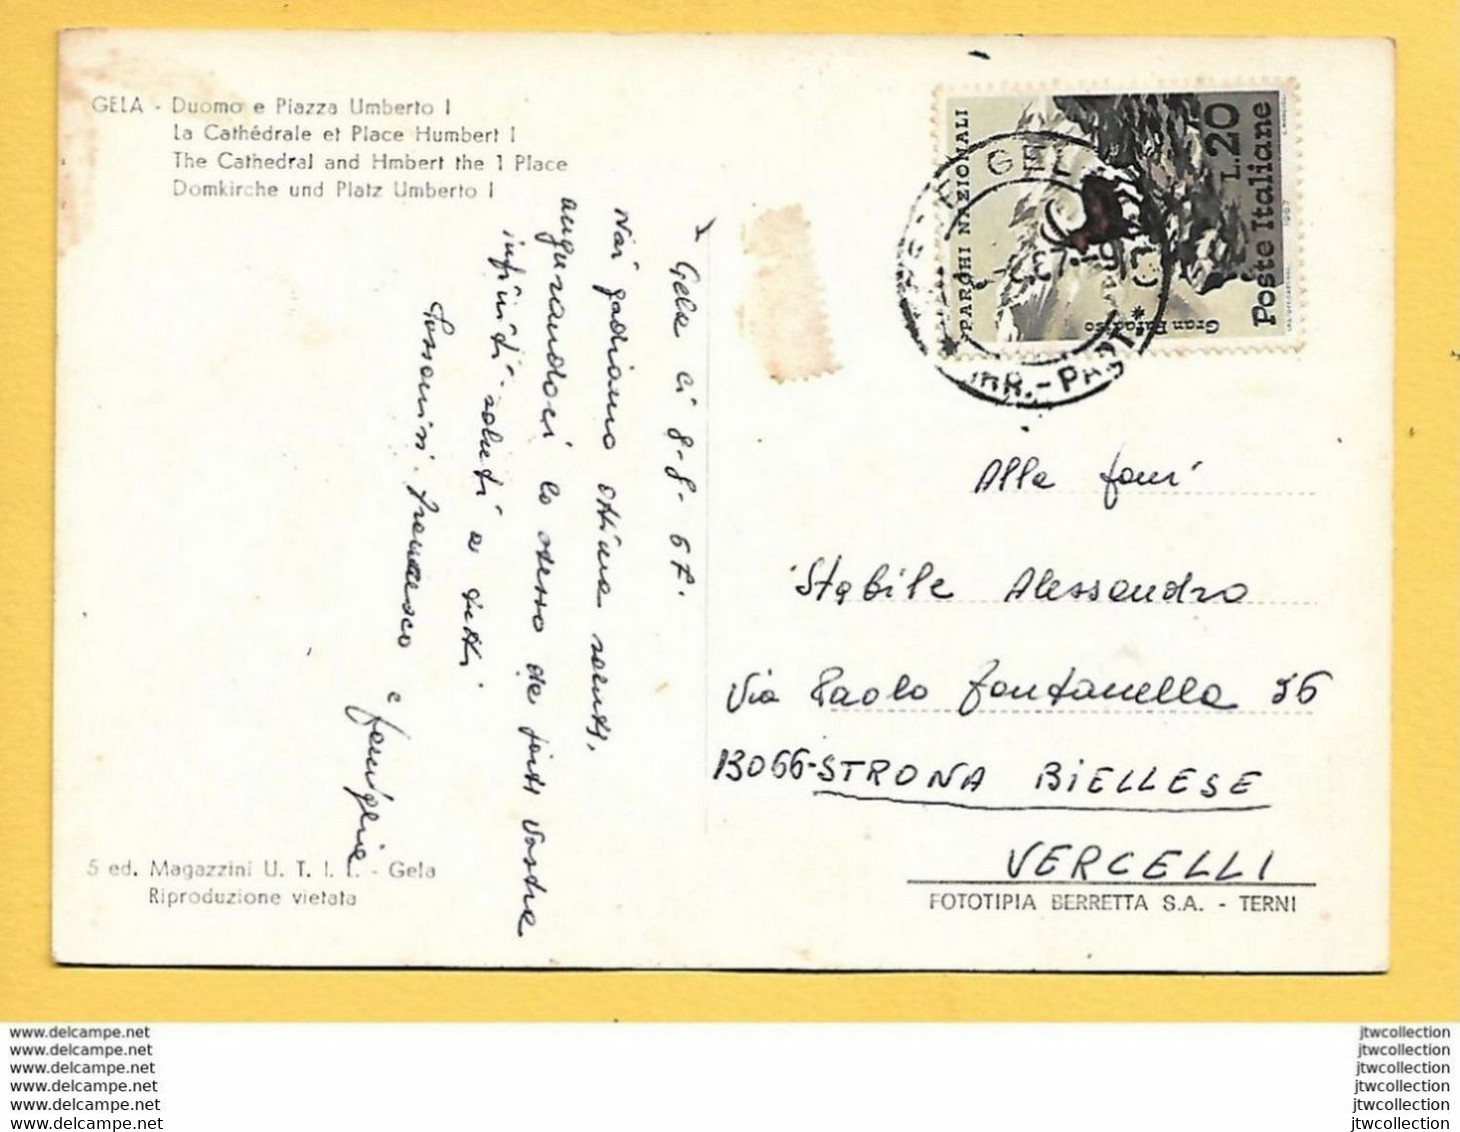 GELA - Duomo e Piazza Umberto I
La Cathédrale et Place Humbert I
The Cathedral and Hmbert the 1 Place
Domkirche und Platz Umberto I
PARCHI NAZIONALI
Gran Paradiso
L.20
Poste Italiane
1967
GEL
ARR.-PART.
Gela li 8-8-67.
Noi godiamo ottima salute,
augurandoci lo stesso da parte vostra
infiniti saluti a tutti
Francesco e
famiglia
Alla fam
Stabile Alessandro
Via Paolo Fontanella 36
13066-STRONA BIELLESE
VERCELLI
5 ed. Magazzini U. T. I. L. - Gela
Riproduzione vietata
FOTOTIPIA BERRETTA S.A. - TERNI
www.delcampe.net
www.delcampe.net
www.delcampe.net
www.delcampe.net
www.delcampe.net
www.delcampe.net
jtwcollection
jtwcollection
jtwcollection
jtwcollection
jtwcollection
jtwcollection